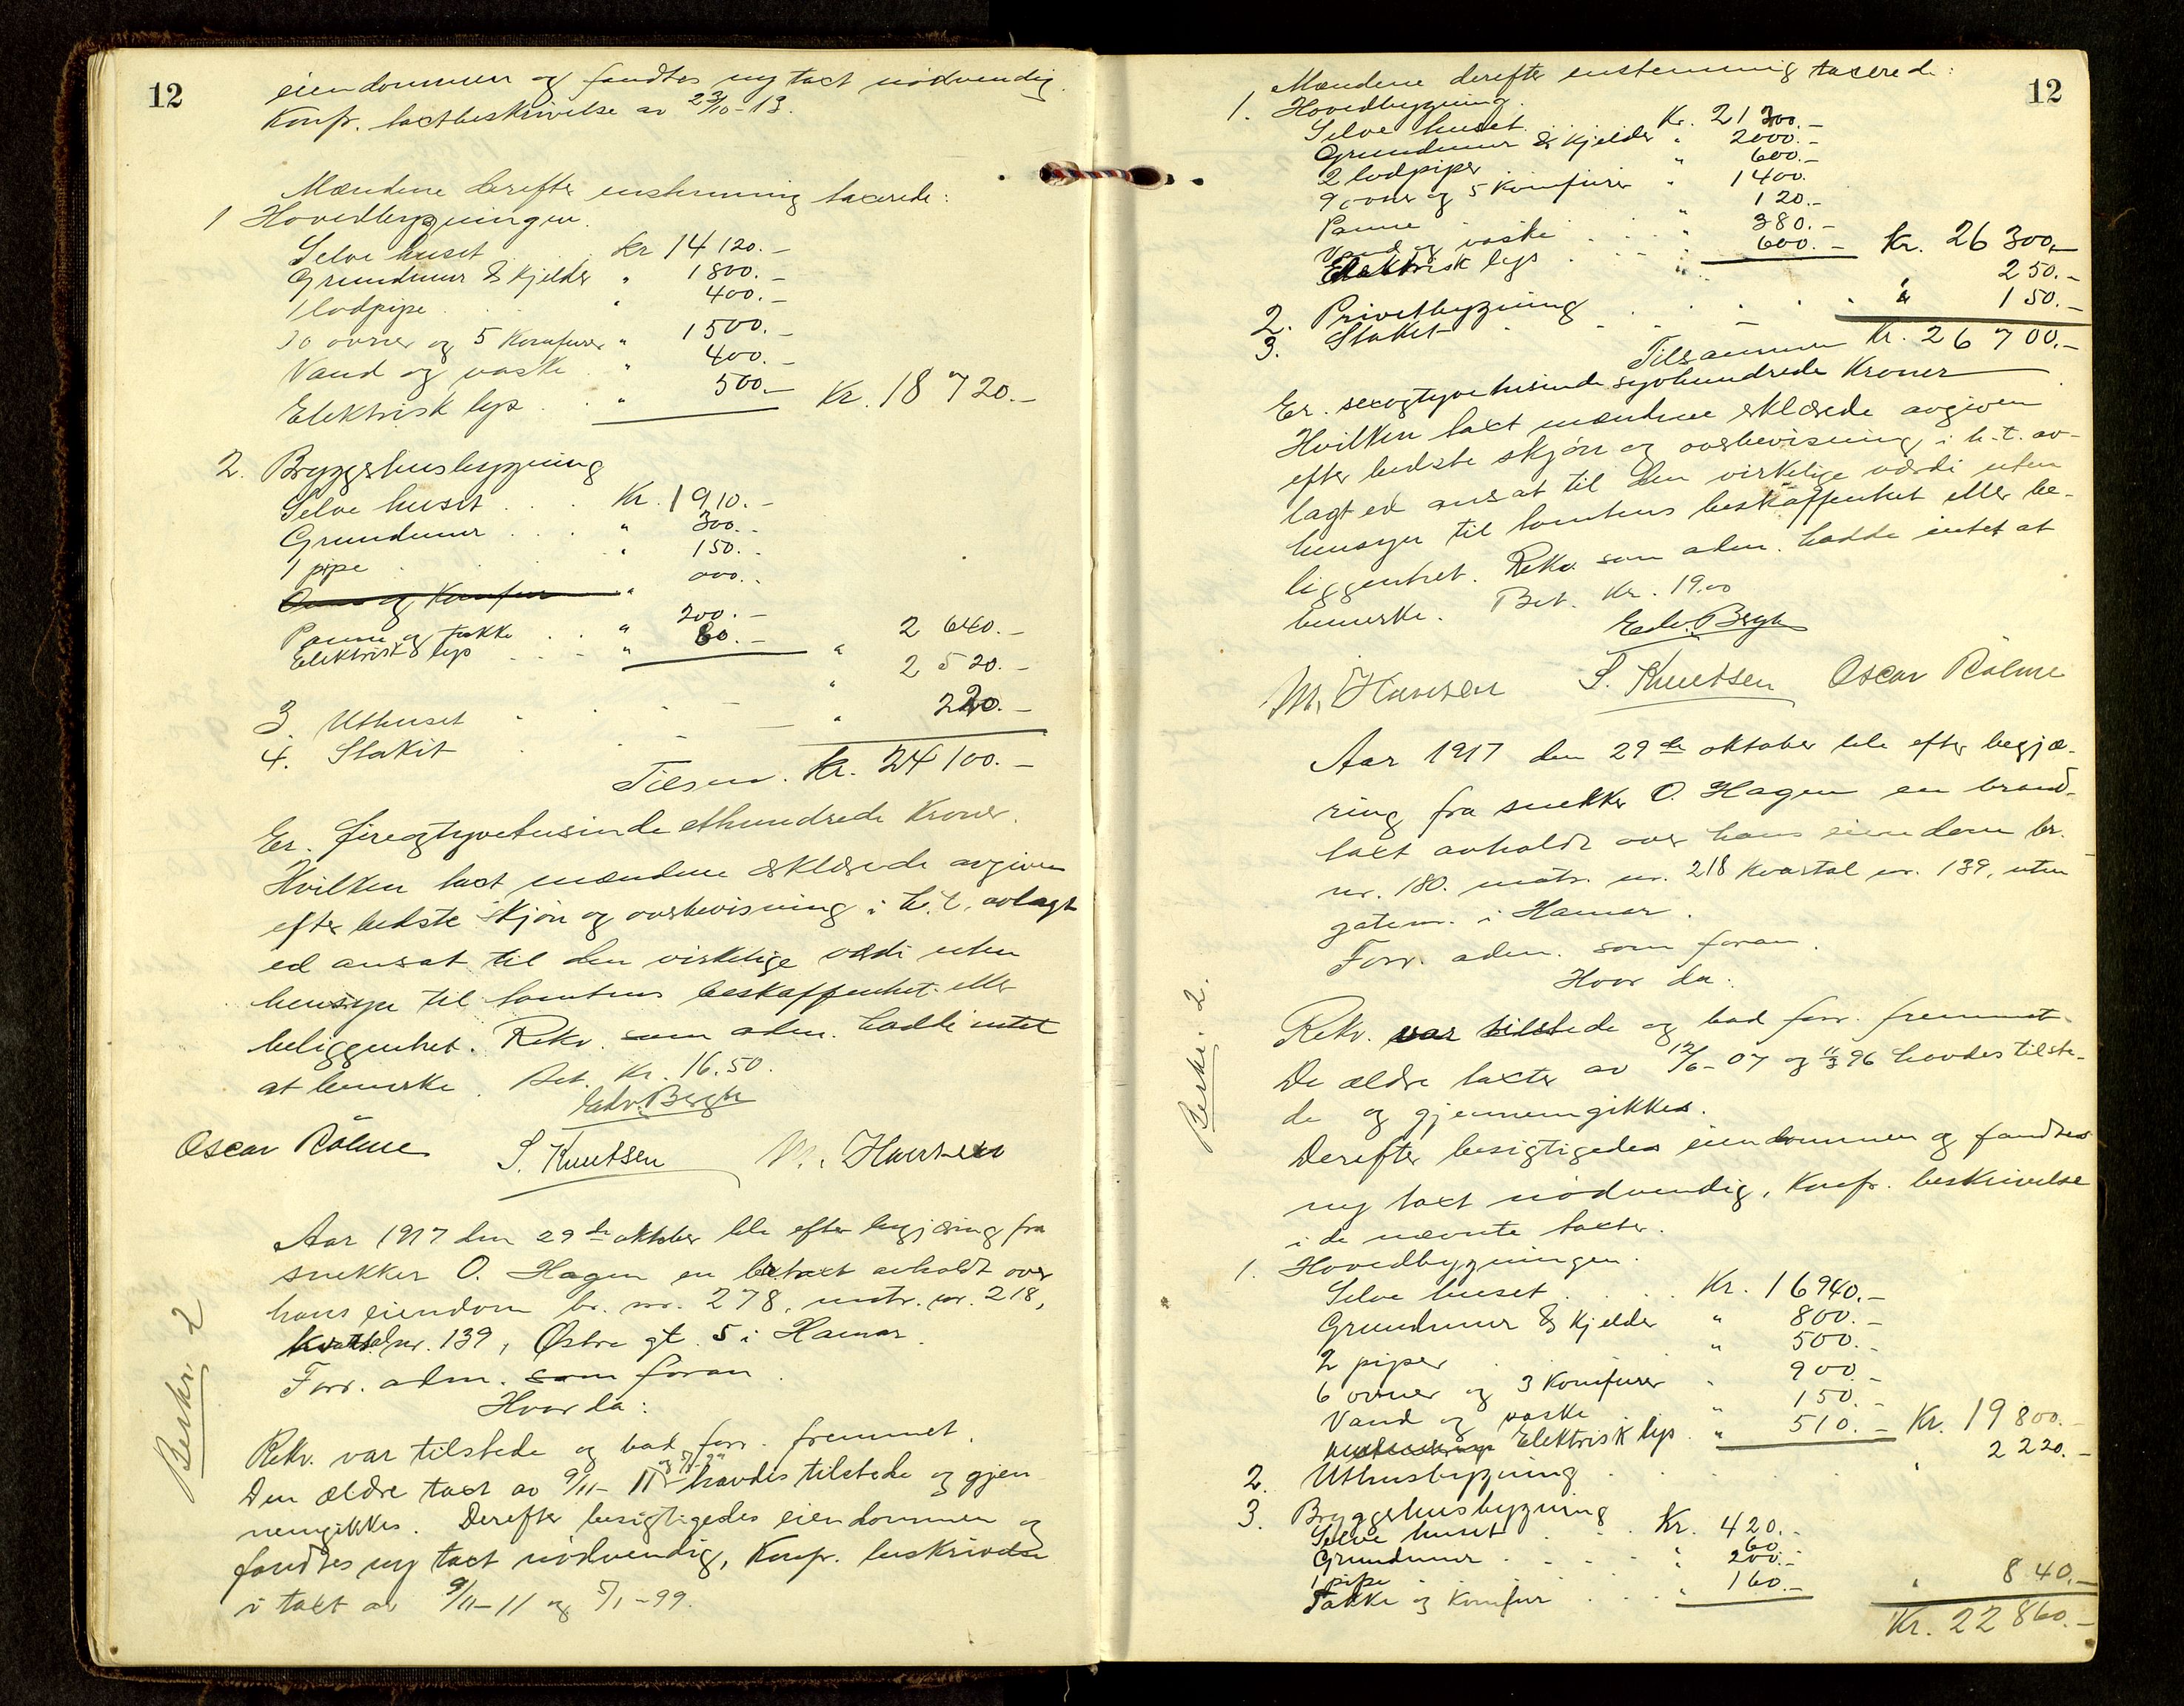 12
eiendommen og fandtes ny taxt nödvendig.
Konfr. taxtbeskrivelse av 23/10-13.
Mændene derefter enstemmig taxerede:
1 Hovedbygningen.
Selve huset . . Kr 14120.-
Grundmur & kjelder " 1800.-
1 lodpipe . . " 400.-
10 ovner og 5 komfurer " 1500.-
Vand og vaske . " 400.-
Elektrisk lys . . " 500.- Kr. 18720.-
2. Bryggerhusbygning
Selve huset . . . Kr. 1910.-
Grundmur . . . " 300.-
1 pipe . . . " 150.-
Ovn og Komfur " 000.-
Panne og takke . . " 200.-
Elektrisk lys . . . " 80.- " 2640.-
3. Uthuset . . . - " 2520.-
4. Stakit . . . - " 220.-
Tilsm. Kr. 24100.-
Er. fireogtyvetusinde ethundrede Kroner.
Hvilken taxt mændene erklærede avgiven
efter bedste skjön og overbevisning i h.t. avlagt
ed ansat til den virkelige værdi uten
hensyn til tomtens beskaffenhet eller
beliggenhet. Rekv. som adm. hadde intet
at bemerke. Bet. Kr. 16.50.
Edv. Bergh
Oscar Rölme S. Knutsen M. Hansen
Aar 1917 den 29de oktober ble efter begjæring fra
snekker O. Hagen en br.taxt avholdt over
hans eiendom br. nr. 278, matr. nr. 218,
kvartal nr. 139, Østre gt. 5 i Hamar.
Forr. adm. som foran.
Hvor da:
Beskr. 2
Rekv. var tilstede og bad forr. fremmet.
Den ældre taxt av 9/11-11 havdes tilstede og gjen
nemgikkes. Derefter besigtigedes eiendommen og
fandtes ny taxt nödvendig, Konfr. beskrivelse
i taxt av 9/11-11 og 5/1-99.
12
Mændene derefter enstemmig taxerede:
1. Hovedbygning.
Selve huset . . Kr. 21300.-
Grundmur & kjelder " 2000.-
2 lodpiper " 600.-
9 ovner og 5 komfurer " 1400.
Panne " 120.-
Vand og vaske . . . " 380.-
Elektrisk lys . . . " 600.- Kr. 26300.-
2. Privetbygning . . . . " 250.-
3. Stakit . . . - " 150.-
Tilsammen Kr. 26700.-
Er. sexogtyvetusinde syvhundrede Kroner
Hvilken taxt mændene erklærede avgiven
efter bedste skjön og overbevisning i h.t. av-
lagt ed ansat til den virkelige værdi uten
hensyn til tomtens beskaffenhet eller be-
liggenhet. Rekv. som adm. hadde intet at
bemerke. Bet. Kr. 19.00
Edv. Bergh
M. Hansen S. Knutsen Oscar Rölme
Aar 1917 den 29de oktober ble efter begjæ-
ring fra snekker O. Hagen en brand-
taxt avholdt over hans eiendom br.
nr. 180. matr. nr. 218 kvartal nr. 139, uten
gatenr. i Hamar.
Forr. adm. som foran.
Hvor da:
Beskr. 2.
Rekv. var tilstede og bad forr. fremmet.
De ældre taxter av 12/6-07 og 11/3 96 havdes tilste-
de og gjennemgikkes.
Derefter besigtigedes eiendommen og fandtes
ny taxt nödvendig, Konfr. beskrivelse
i de nævnte taxter.
1. Hovedbygningen.
Selve huset . . . Kr. 16940.-
Grundmur & kjelder " 800.-
2 piper . . " 500.-
6 ovner og 3 komfurer " 900.-
Vand og vaske . " 150.-
Elektrisk lys . " 510.- Kr. 19800.-
2. Uthusbygning . . . . . " 2220.-
3. Bryggerhusbygning
Selve huset . . . Kr. 420.-
Grundmur . . . . " 60
1 pipe . . . " 200.-
Takke og komfur . . . " 160.- " 840.-
Kr. 22860.-